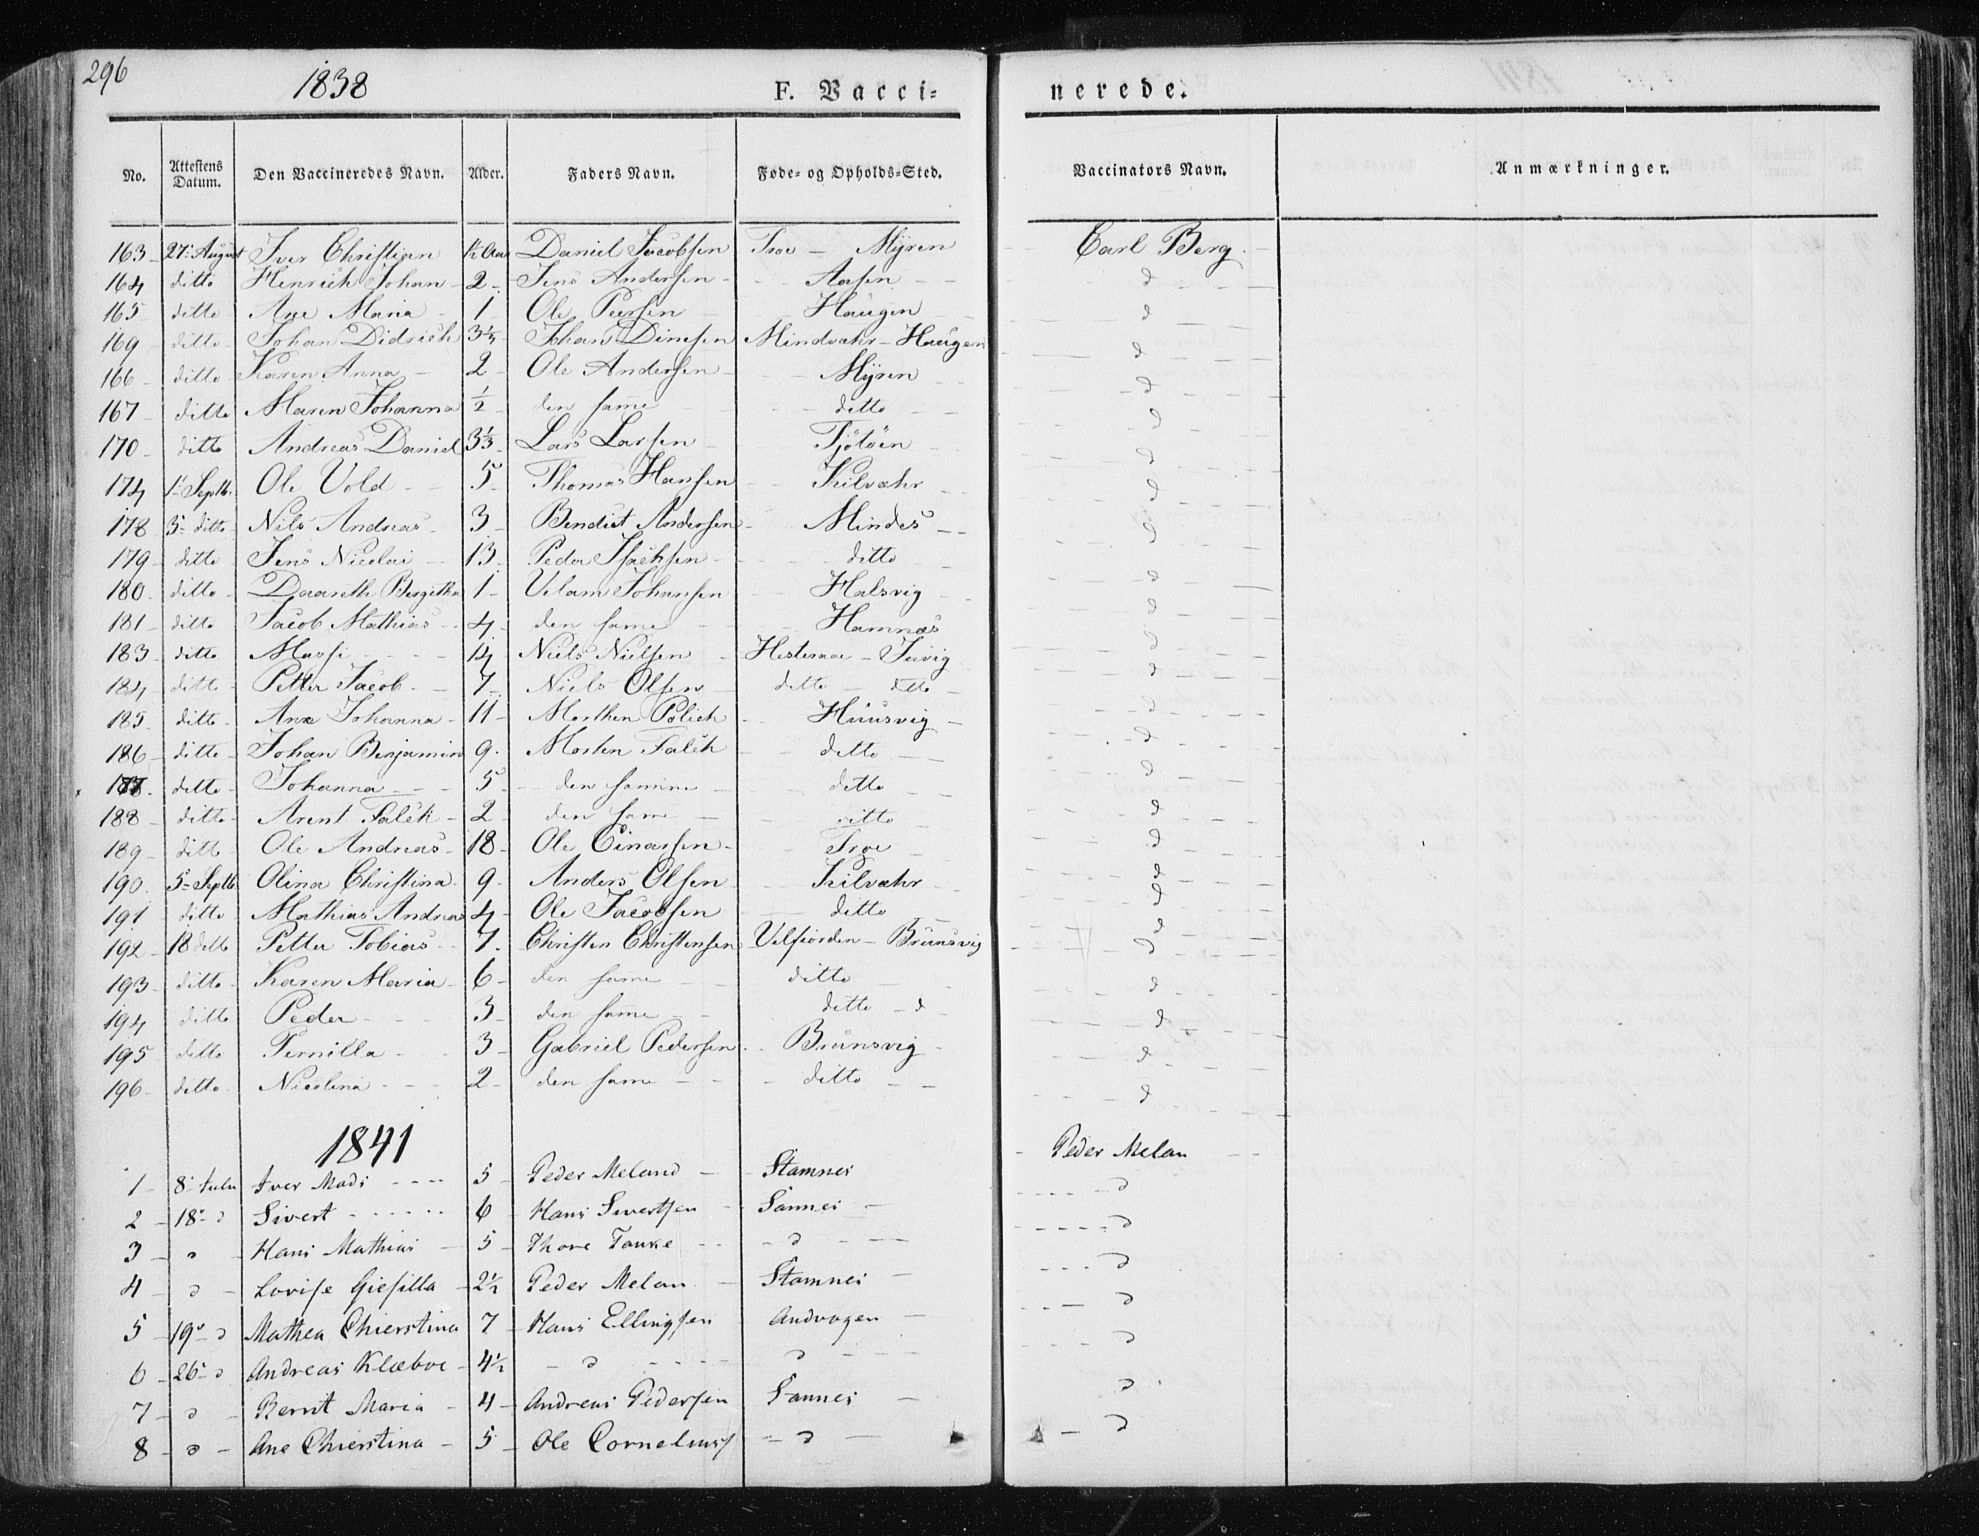 296
1838
F. Vacci-
nerede.
No. Attestens Datum. Den Vaccineredes Navn. Alder. Faders Navn. Føde- og Opholds-Sted. Vaccinators Navn. Anmærkninger.
163 27. August Iver Christian Daniel Jacobsen Troe - Myren Carl Berg
164 ditto Henrich Johan 2 Jens Andersen Aasen d
165 ditto Ane Maria 1 Ole Peersen Haugen d
169 ditto Johan Didrich 3½ Johan Dinesen Mindvahr - Haugen d
166 ditto Karen Anna 2 Ole Andersen Myren d
167 ditto Maren Johanna ½ den same ditto d
170 ditto Andreas Daniel 3⅓ Lars Larsen Tjötöen d
174 1. Septb. Ole Vold 5 Thomas Hansen Kilvahr d
178 3. ditto Nils Andreas 3 Bendict Andersen Mindes d
179 ditto Jens Nicolai 13 Peder Isachsen ditto d
180 ditto Daareth Bergitha 1 Velam Johansen Halsvig d
181 ditto Jacob Mathias 4 den same Hamnæs d
183 ditto Massi 14 Niels Nielsen Hestenæe - d
184 ditto Petter Jacob 7 Niels Olsen ditto - ditto d
185 ditto Ane Johanna 11 Morthen Huusvig d
186 ditto Johan Benjamin 9 Morten Falch ditto d
187 ditto Johanna 5 den samme ditto d
188 ditto Arent Falch 2 den same ditto d
189 ditto Ole Andreas 18 Ole Einarsen Troe d
190 5. Septb Olina Christina 9 Anders Olsen Kilvahr d
191 ditto Mathias Andreas 4 Ole Jacobsen ditto d
192 18 ditto Petter Tobias 7 Christen Christensen Velfiorden - Brunsvig d
193 ditto Karen Maria 6 den same ditto d
194 ditto Peder 3 den same ditto - d d
195 ditto Pernilla 3 Gabriel Pedersen Brunsvig d
196 ditto Nicolina 2 den same ditto d
1841
1 8. Iver Mads 5 Peder Meland Stamnes Peder Melan
2 18. d Sivert 6 Hans Sivertsen Sannes d
3 d Hans Mathias 5 Thore d d
4 d Lovise Giesilla 2½ Peder Melan Stamnes d
5 19. d Mathea Chierstina 7 Hans Ellingsen Andvagen d
6 26. d Andreas Klæboe 4½ d d d
7 d Berrit Maria 4 Andreas Pedersen Sannes d
8 d Ane Chierstina 5 Ole Cornelius d d